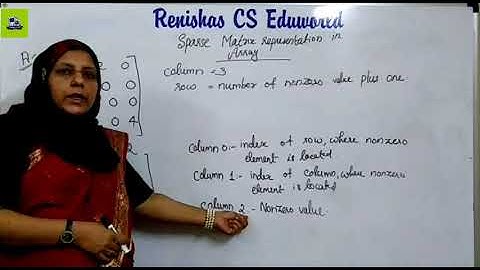 Renishas CS Eduworld
Sparse Matrix representation in
Array
A =
2 0
column = 3
0
row = number of nonzero value plus one
0 0
0 4
column 0:- index of row, where nonzero
element is located
column 1 - index of column, where nonzero
element is located
column 2 - Nonzero value.